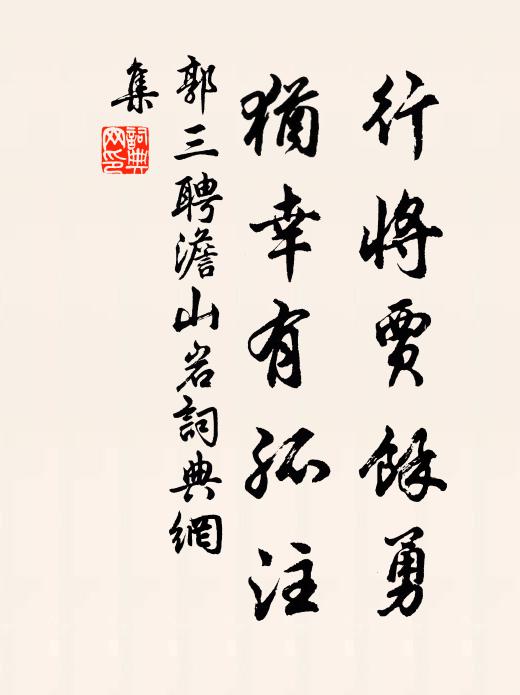 行將賈餘勇
猶幸有孤注
郭三聘澹山岩詞典網
集
詞典網印